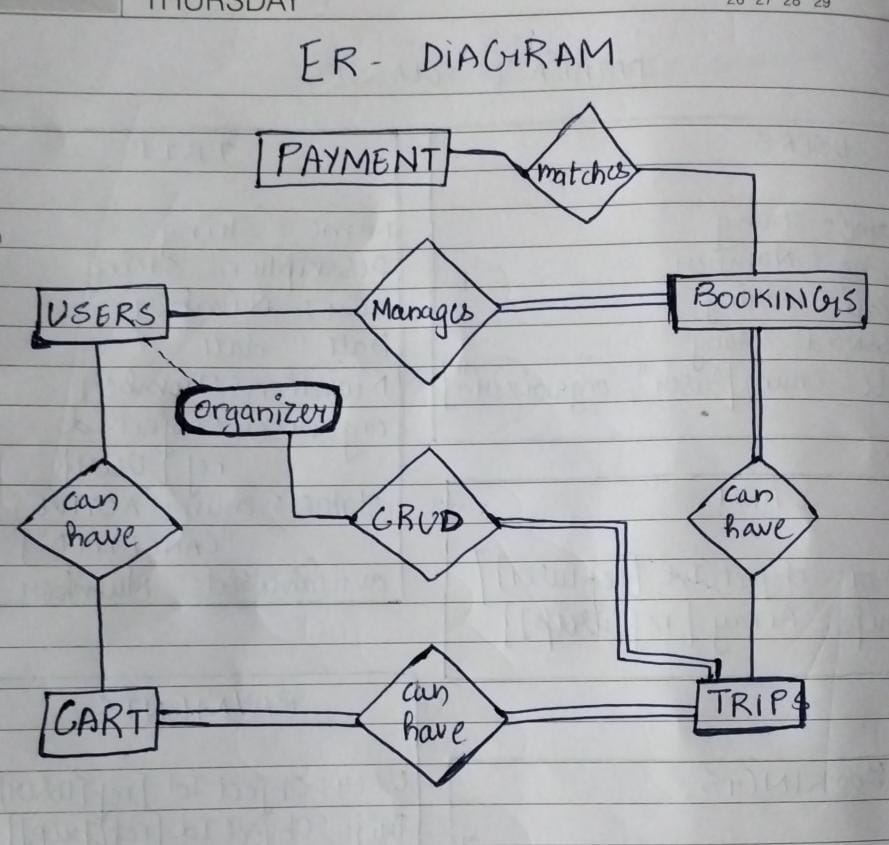 THURSDAY
26 27 28 29
ER - DIAGRAM
PAYMENT
matches
USERS
Manages
BOOKINGS
organizer
can
have
CRUD
can
have
CART
can
have
TRIPS